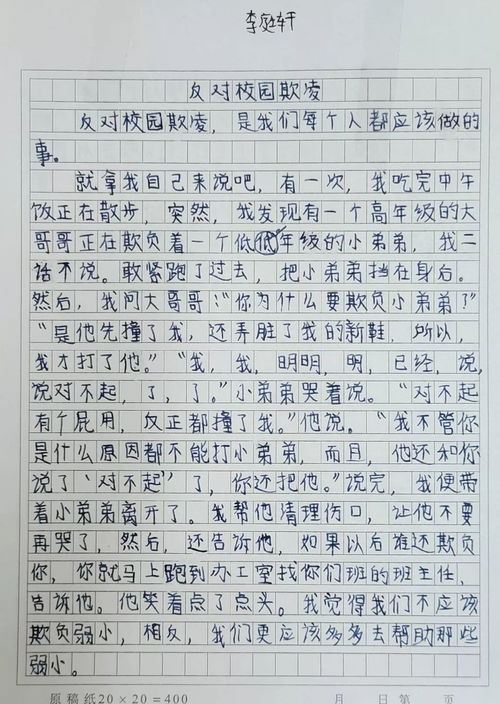 李庭轩
反对校园欺凌
反对校园欺凌，是我们每个人都应该做的
事。
就拿我自己来说吧，有一次，我吃完中午
饭正在散步，突然，我发现有一个高年级的大
哥哥正在欺负着一个低低年级的小弟弟，我二
话不说。敢紧跑了过去，把小弟弟挡在身后。
然后，我问大哥哥：“你为什么要欺负小弟弟？”
“是他先撞了我，还弄脏了我的新鞋，所以，
我才打了他。”“我，我，明明，明，已经，说，
说对不起，了，了。”小弟弟哭着说。“对不起
有个屁用，反正都撞了我。”他说。“我不管你
是什么原因都不能打小弟弟，而月，他还和你
说了‘对不起’了，你还把他。”说完，我便带
着小弟弟离开了。我帮他清理伤口，让他不要
再哭了，然后，还告诉他，如果以后谁还欺负
你，你就马上跑到办工室找你们班的班主任，
告诉他。他笑着点了点头。我觉得我们不应该
欺负弱小，相反，我们更应该多多去帮助那些
弱小。
原稿纸20×20=400 月 日第 页